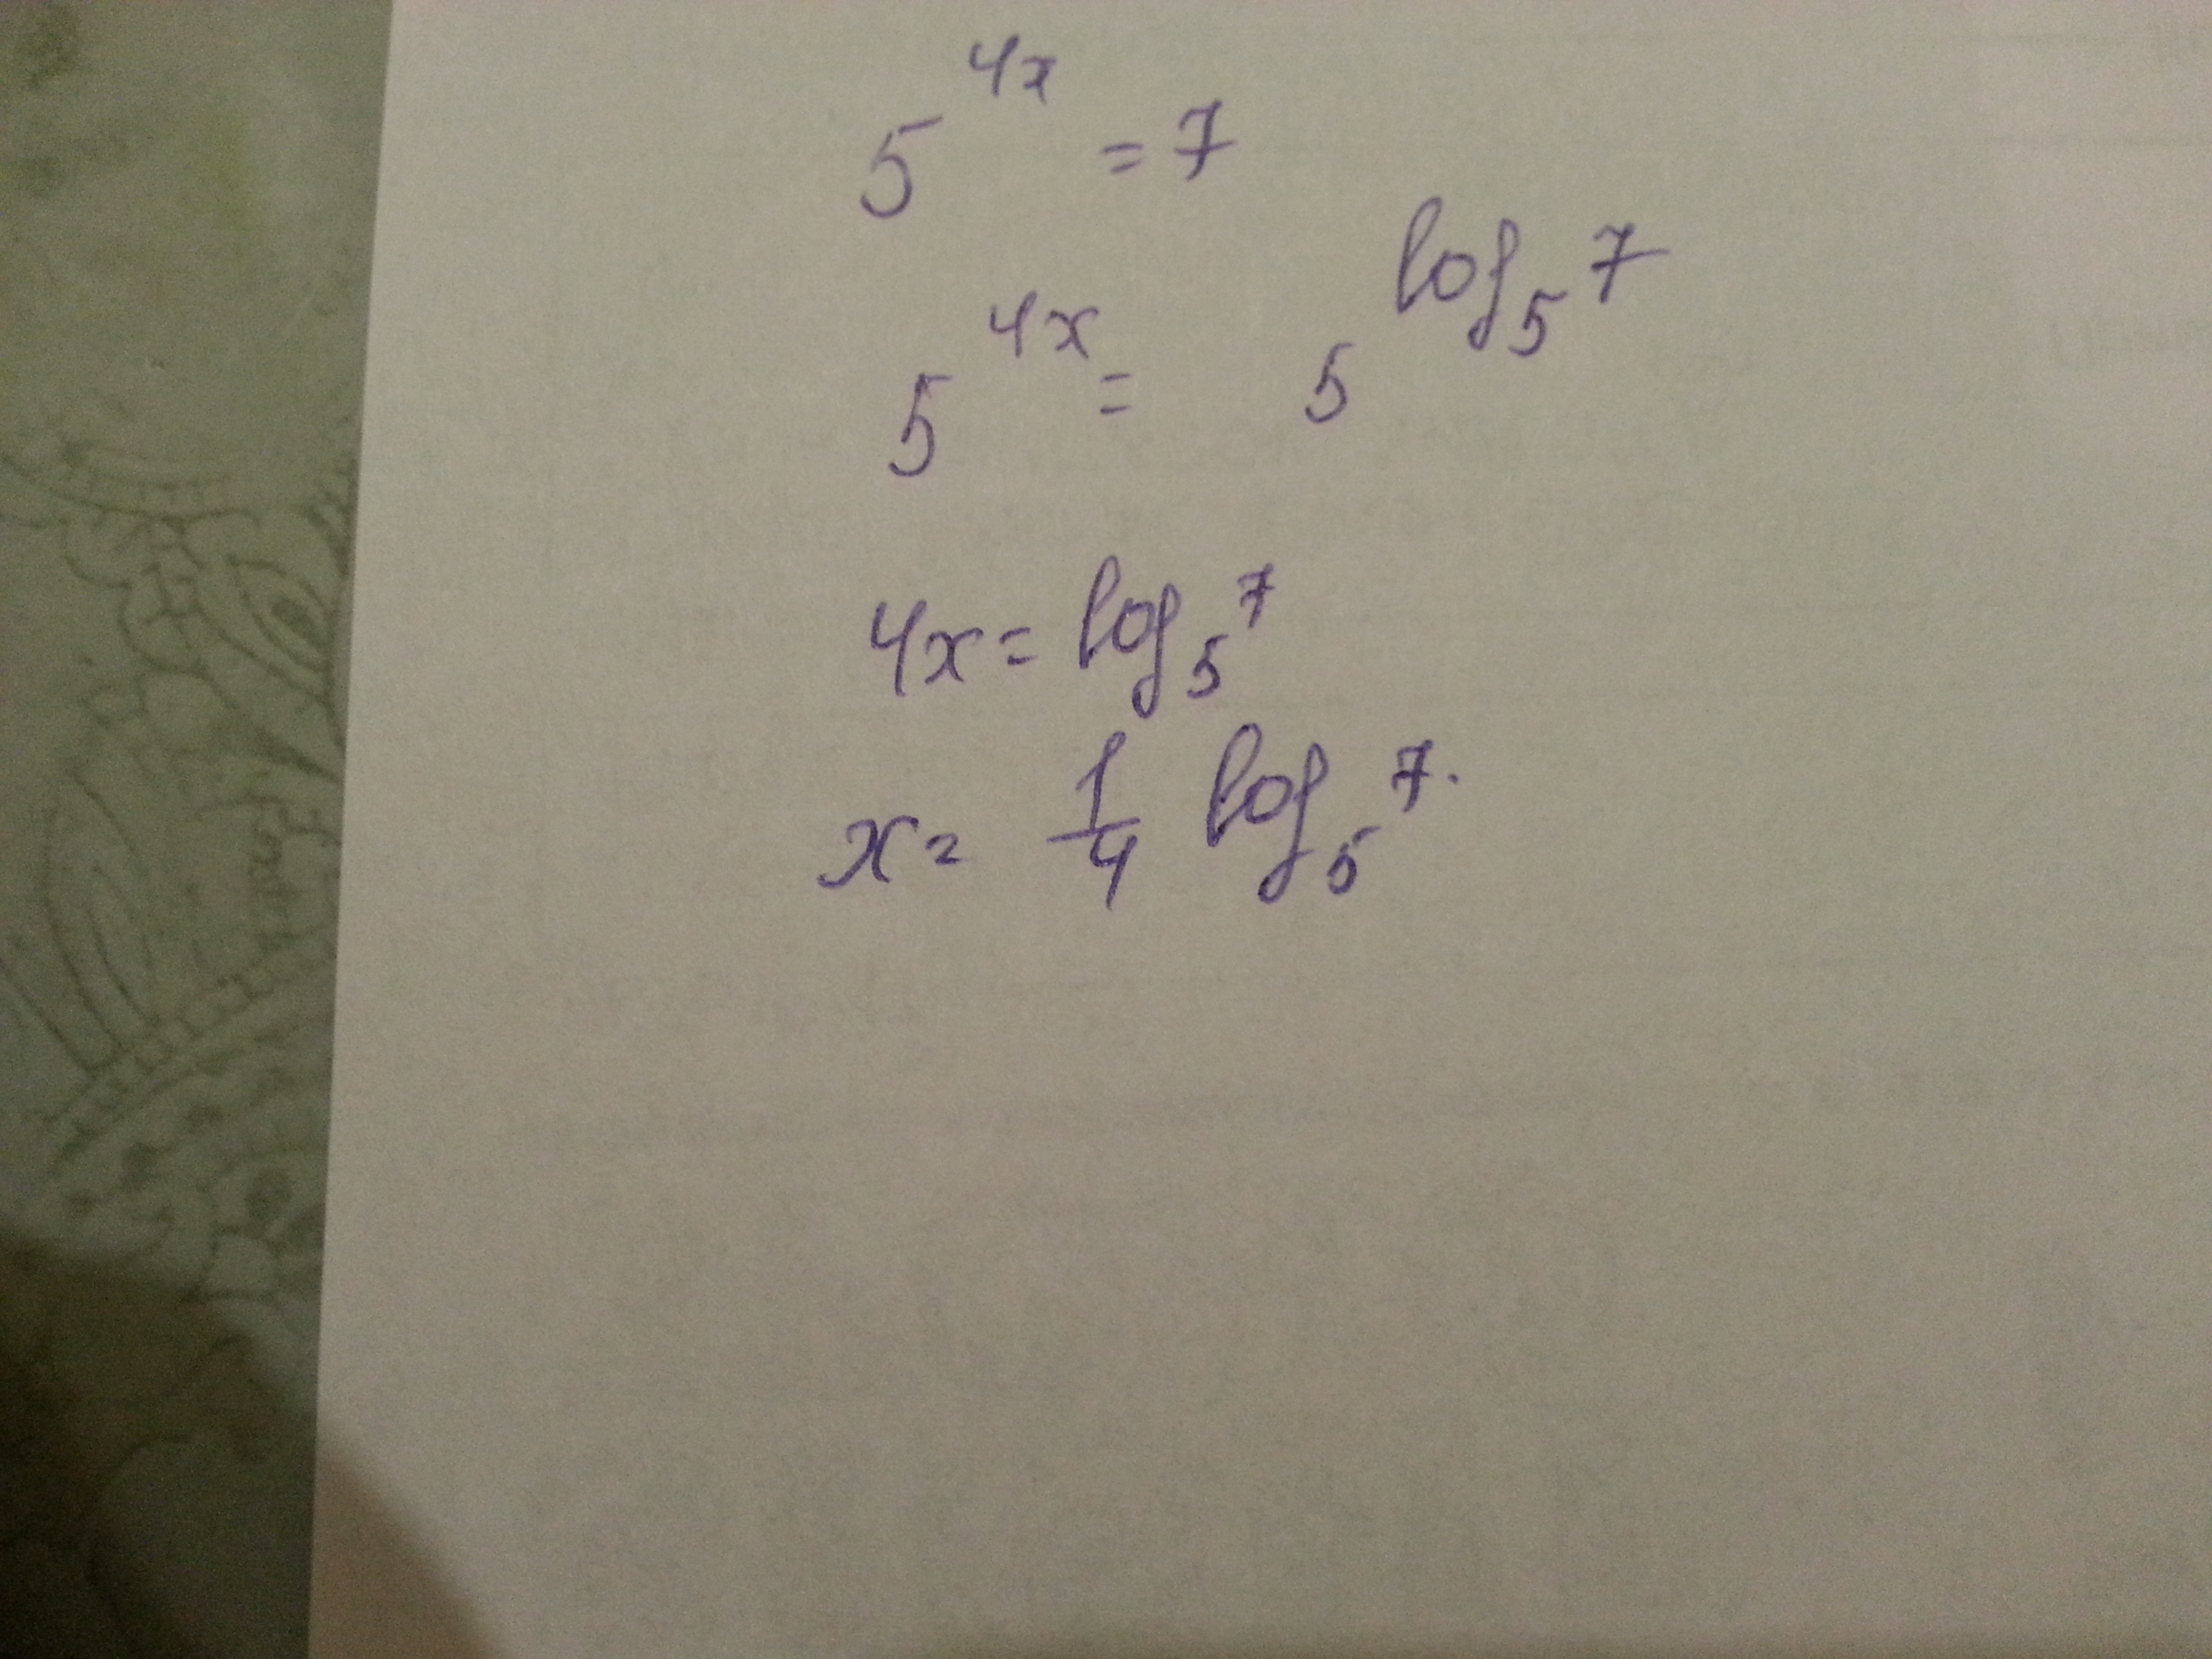 5^{4x} = 7
5^{4x} = 5^{log_5 7}
4x = log_5 7
x = \frac{1}{4} log_5 7.